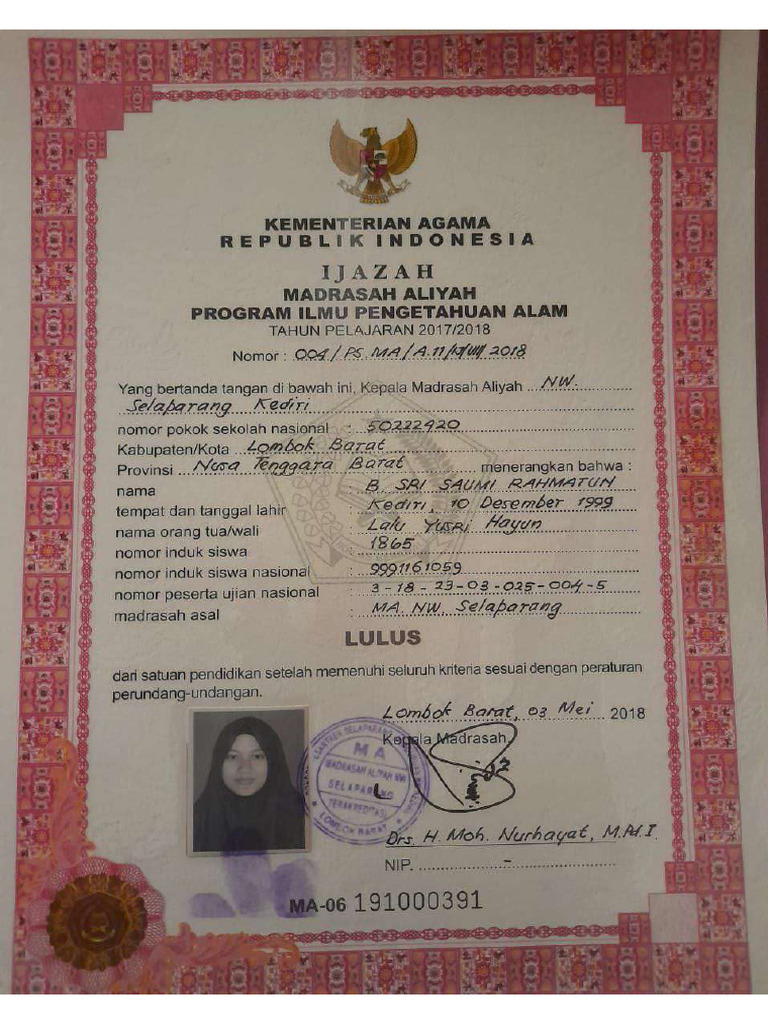 KEMENTERIAN AGAMA
REPUBLIK INDONESIA
IJAZAH
MADRASAH ALIYAH
PROGRAM ILMU PENGETAHUAN ALAM
TAHUN PELAJARAN 2017/2018
Nomor : 004/PS.MA/A.11/10/VIII/2018
Yang bertanda tangan di bawah ini, Kepala Madrasah Aliyah NW.
Selaparang Kediri
nomor pokok sekolah nasional : 50222420
Kabupaten/Kota Lombok Barat
Provinsi Nusa Tenggara Barat menerangkan bahwa :
nama : B. SRI SAUMI RAHMATUN
tempat dan tanggal lahir : Kediri, 10 Desember 1999
nama orang tua/wali : Lalu YUSRI Hayun
nomor induk siswa : 1865
nomor induk siswa nasional : 9991161059
nomor peserta ujian nasional : 3-18-23-03-025-004-5
madrasah asal : MA. NW. Selaparang
LULUS
dari satuan pendidikan setelah memenuhi seluruh kriteria sesuai dengan peraturan
perundang-undangan.
Lombok Barat, 03 Mei 2018
Kepala Madrasah,
MA
MADRASAH ALIYAH NW
SELAPARANG
TERAKREDITASI
LOMBOK BARAT
Drs. H. Moh. Nurhayat, M.Pd.I.
NIP. -
MA-06 191000391